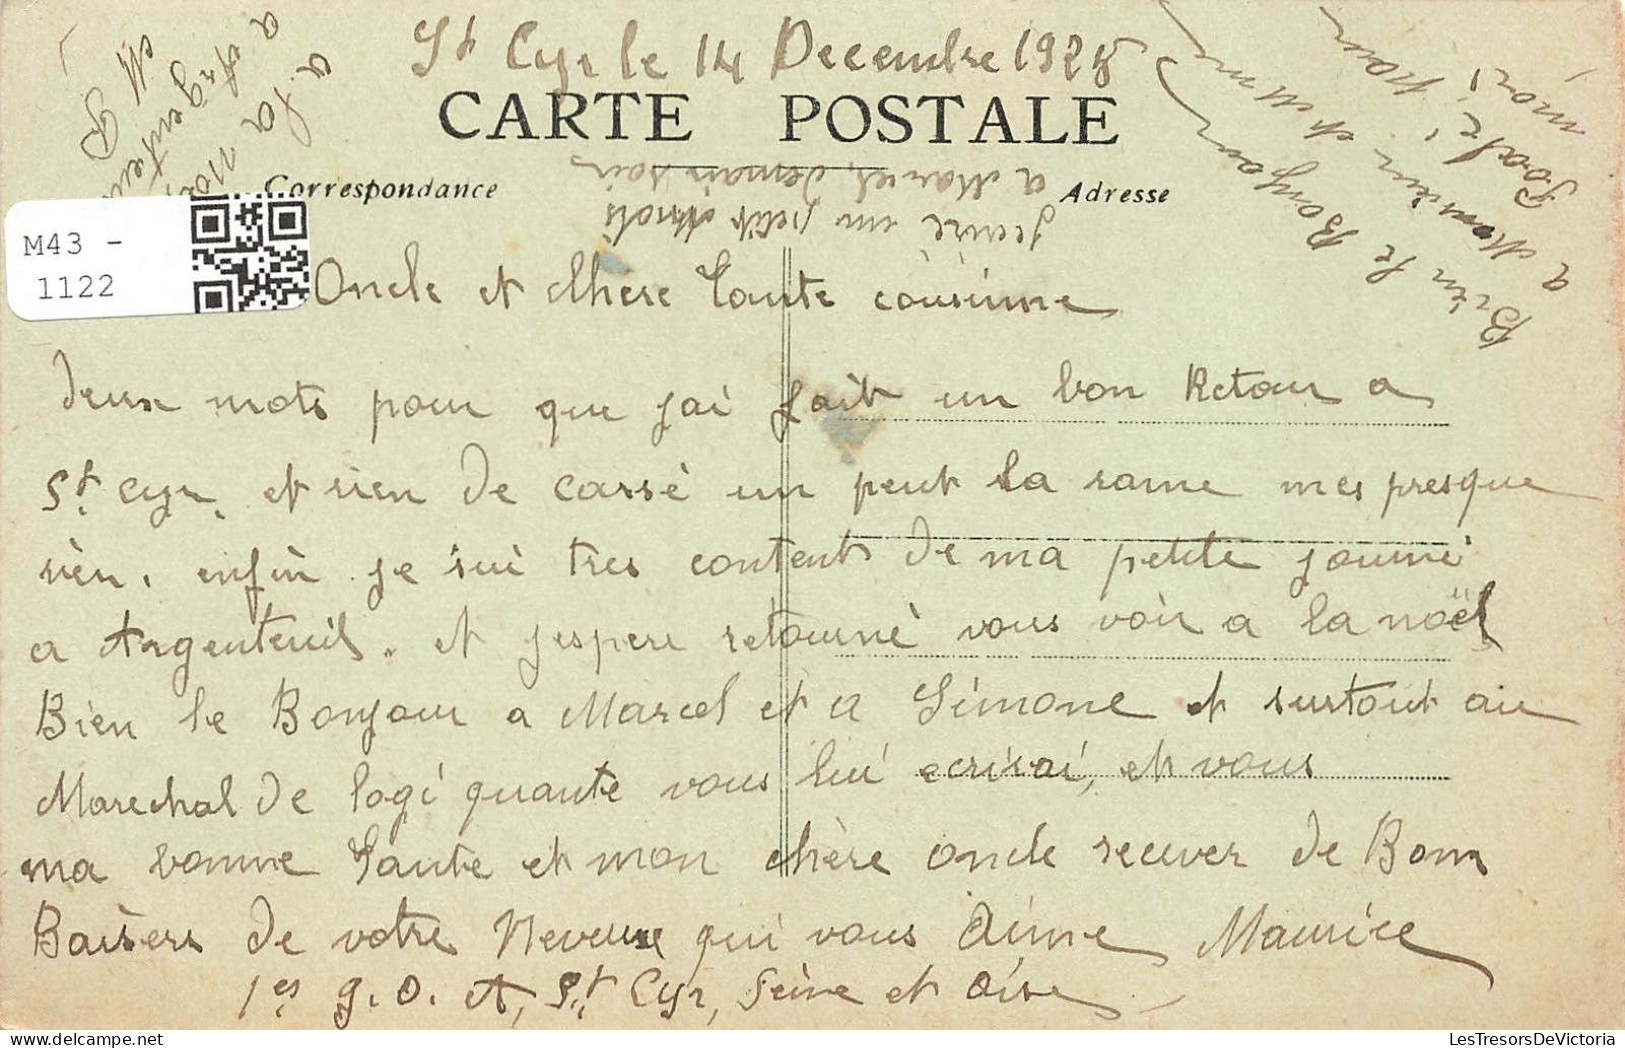 St Cyr le 14 Decembre 1925
CARTE POSTALE
Correspondance
Adresse
M43 -
1122
a la
a Argenteuil
M
jecrire un petit mots
a Marcel, demain soir
Bien le Bonjour
a Monsieur et Mme
mori
Oncle et Chere Tante cousinne
Deux mots pour que jai fait un bon Retour a
St. Cyr. et rien de cassé un peut la rame mes presque
rien. enfin je sui tres content de ma petite journé
a Argenteuil. et jespere retourné vous voir a la noël
Bien le Bonjour a Marcel et a Simone et surtout au
Marechal de logi quante vous lui ecrirai, et vous
ma bonne Tante et mon chère oncle recever de Bons
Baisers de votre Neveux qui vous Aime Maurice
1er g. O. A, St Cyr, Seine et Oise
LesTresorsDeVictoria